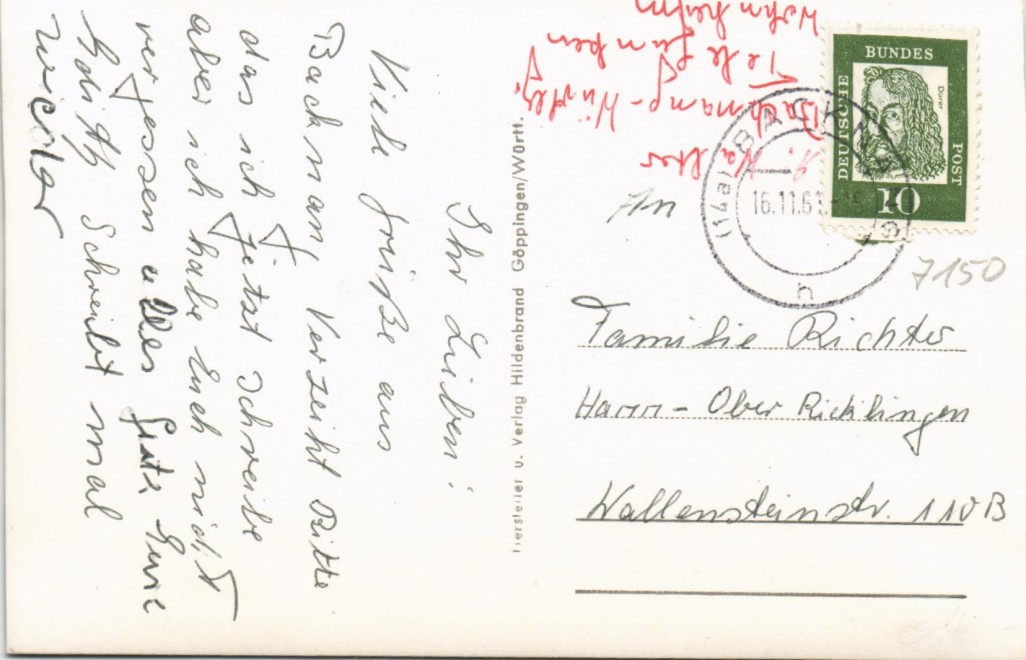 Ihr Lieben!
Viele Grüße aus
Backnang Verzeiht Bitte
das ich jetzt Schreibe
aber ich habe Euch nicht
vergessen alles Gute Eure
Schreibt mal
wieder
Hersteller u. Verlag Hildenbrand Göppingen/Württ.
Walter
Telefunken
Wohnheim
DEUTSCHE
BUNDES
POST
Dürer
10
(14a) BACKNANG
16.11.61
h
An
7150
Familie Richter
Hann - Ober Ricklingen
Wallensteinstr. 110B